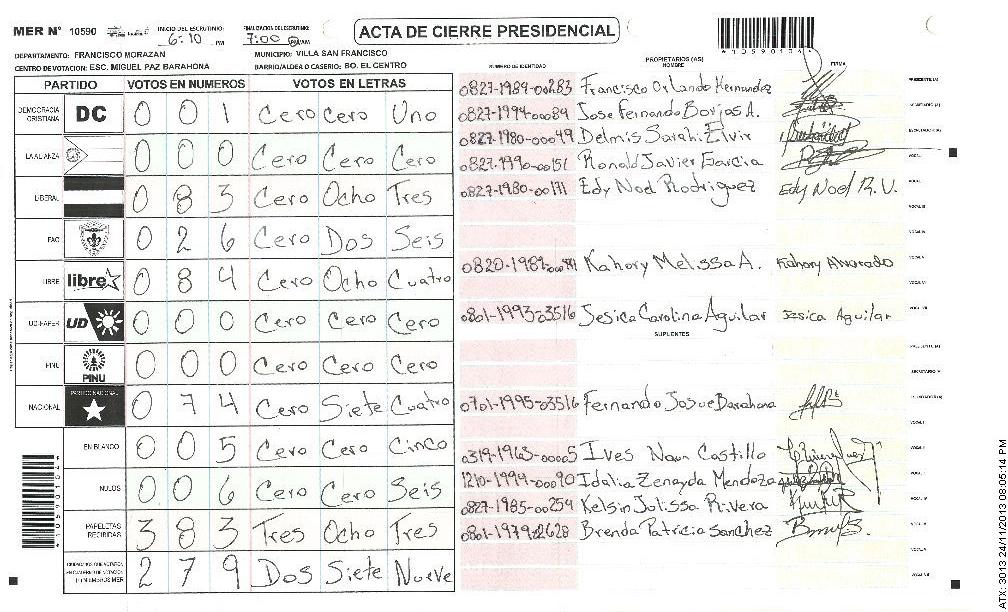 MER N° 10590 INICIO DEL ESCRUTINIO: 6:10 PM FINALIZACION DEL ESCRUTINIO: 7:00 PM/AM ACTA DE CIERRE PRESIDENCIAL
DEPARTAMENTO: FRANCISCO MORAZAN MUNICIPIO: VILLA SAN FRANCISCO
CENTRO DE VOTACION: ESC. MIGUEL PAZ BARAHONA BARRIO/ALDEA O CASERIO: BO. EL CENTRO
PARTIDO VOTOS EN NUMEROS VOTOS EN LETRAS
DEMOCRACIA CRISTIANA DC 0 0 1 Cero Cero Uno
LA ALIANZA 0 0 0 Cero Cero Cero
LIBERAL 0 8 3 Cero Ocho Tres
FAO 0 2 6 Cero Dos Seis
LIBRE libre 0 8 4 Cero Ocho Cuatro
UD-FAPER UD 0 0 0 Cero Cero Cero
PINU PINU 0 0 0 Cero Cero Cero
NACIONAL PARTIDO NACIONAL 0 7 4 Cero Siete Cuatro
EN BLANCO 0 0 5 Cero Cero Cinco
NULOS 0 0 6 Cero Cero Seis
PAPELETAS RECIBIDAS 3 8 3 Tres Ocho Tres
CIUDADANOS QUE VOTARON 2 7 9 Dos Siete Nueve
NUMERO DE IDENTIDAD PROPIETARIOS (AS) NOMBRE FIRMA
0827-1989-00283 Francisco Orlando Hernandez
0827-1994-00084 Jose Fernando Borjas A.
0827-1980-00049 Delmis Sarahi Elvir
0827-1990-00151 Ronald Javier Garcia
0827-1980-00171 Edy Noel Rodriguez Edy Noel R. U.
Kahory Melissa A. Kahory Alvarado
0801-1993-03516 Jesica Carolina Aguilar Jesica Aguilar
SUPLENTES
0701-1995-03516 Fernando Josue Barahona
0319-1963-00005 Ives Naun Castillo
1210-1994-00090 Idalia Zenayda Mendoza
0827-1985-00254 Kelsin Julissa Rivera
Brenda Patricia Sanchez
*10590104*
ATX: 3013 24/11/2013 08:05:14 PM